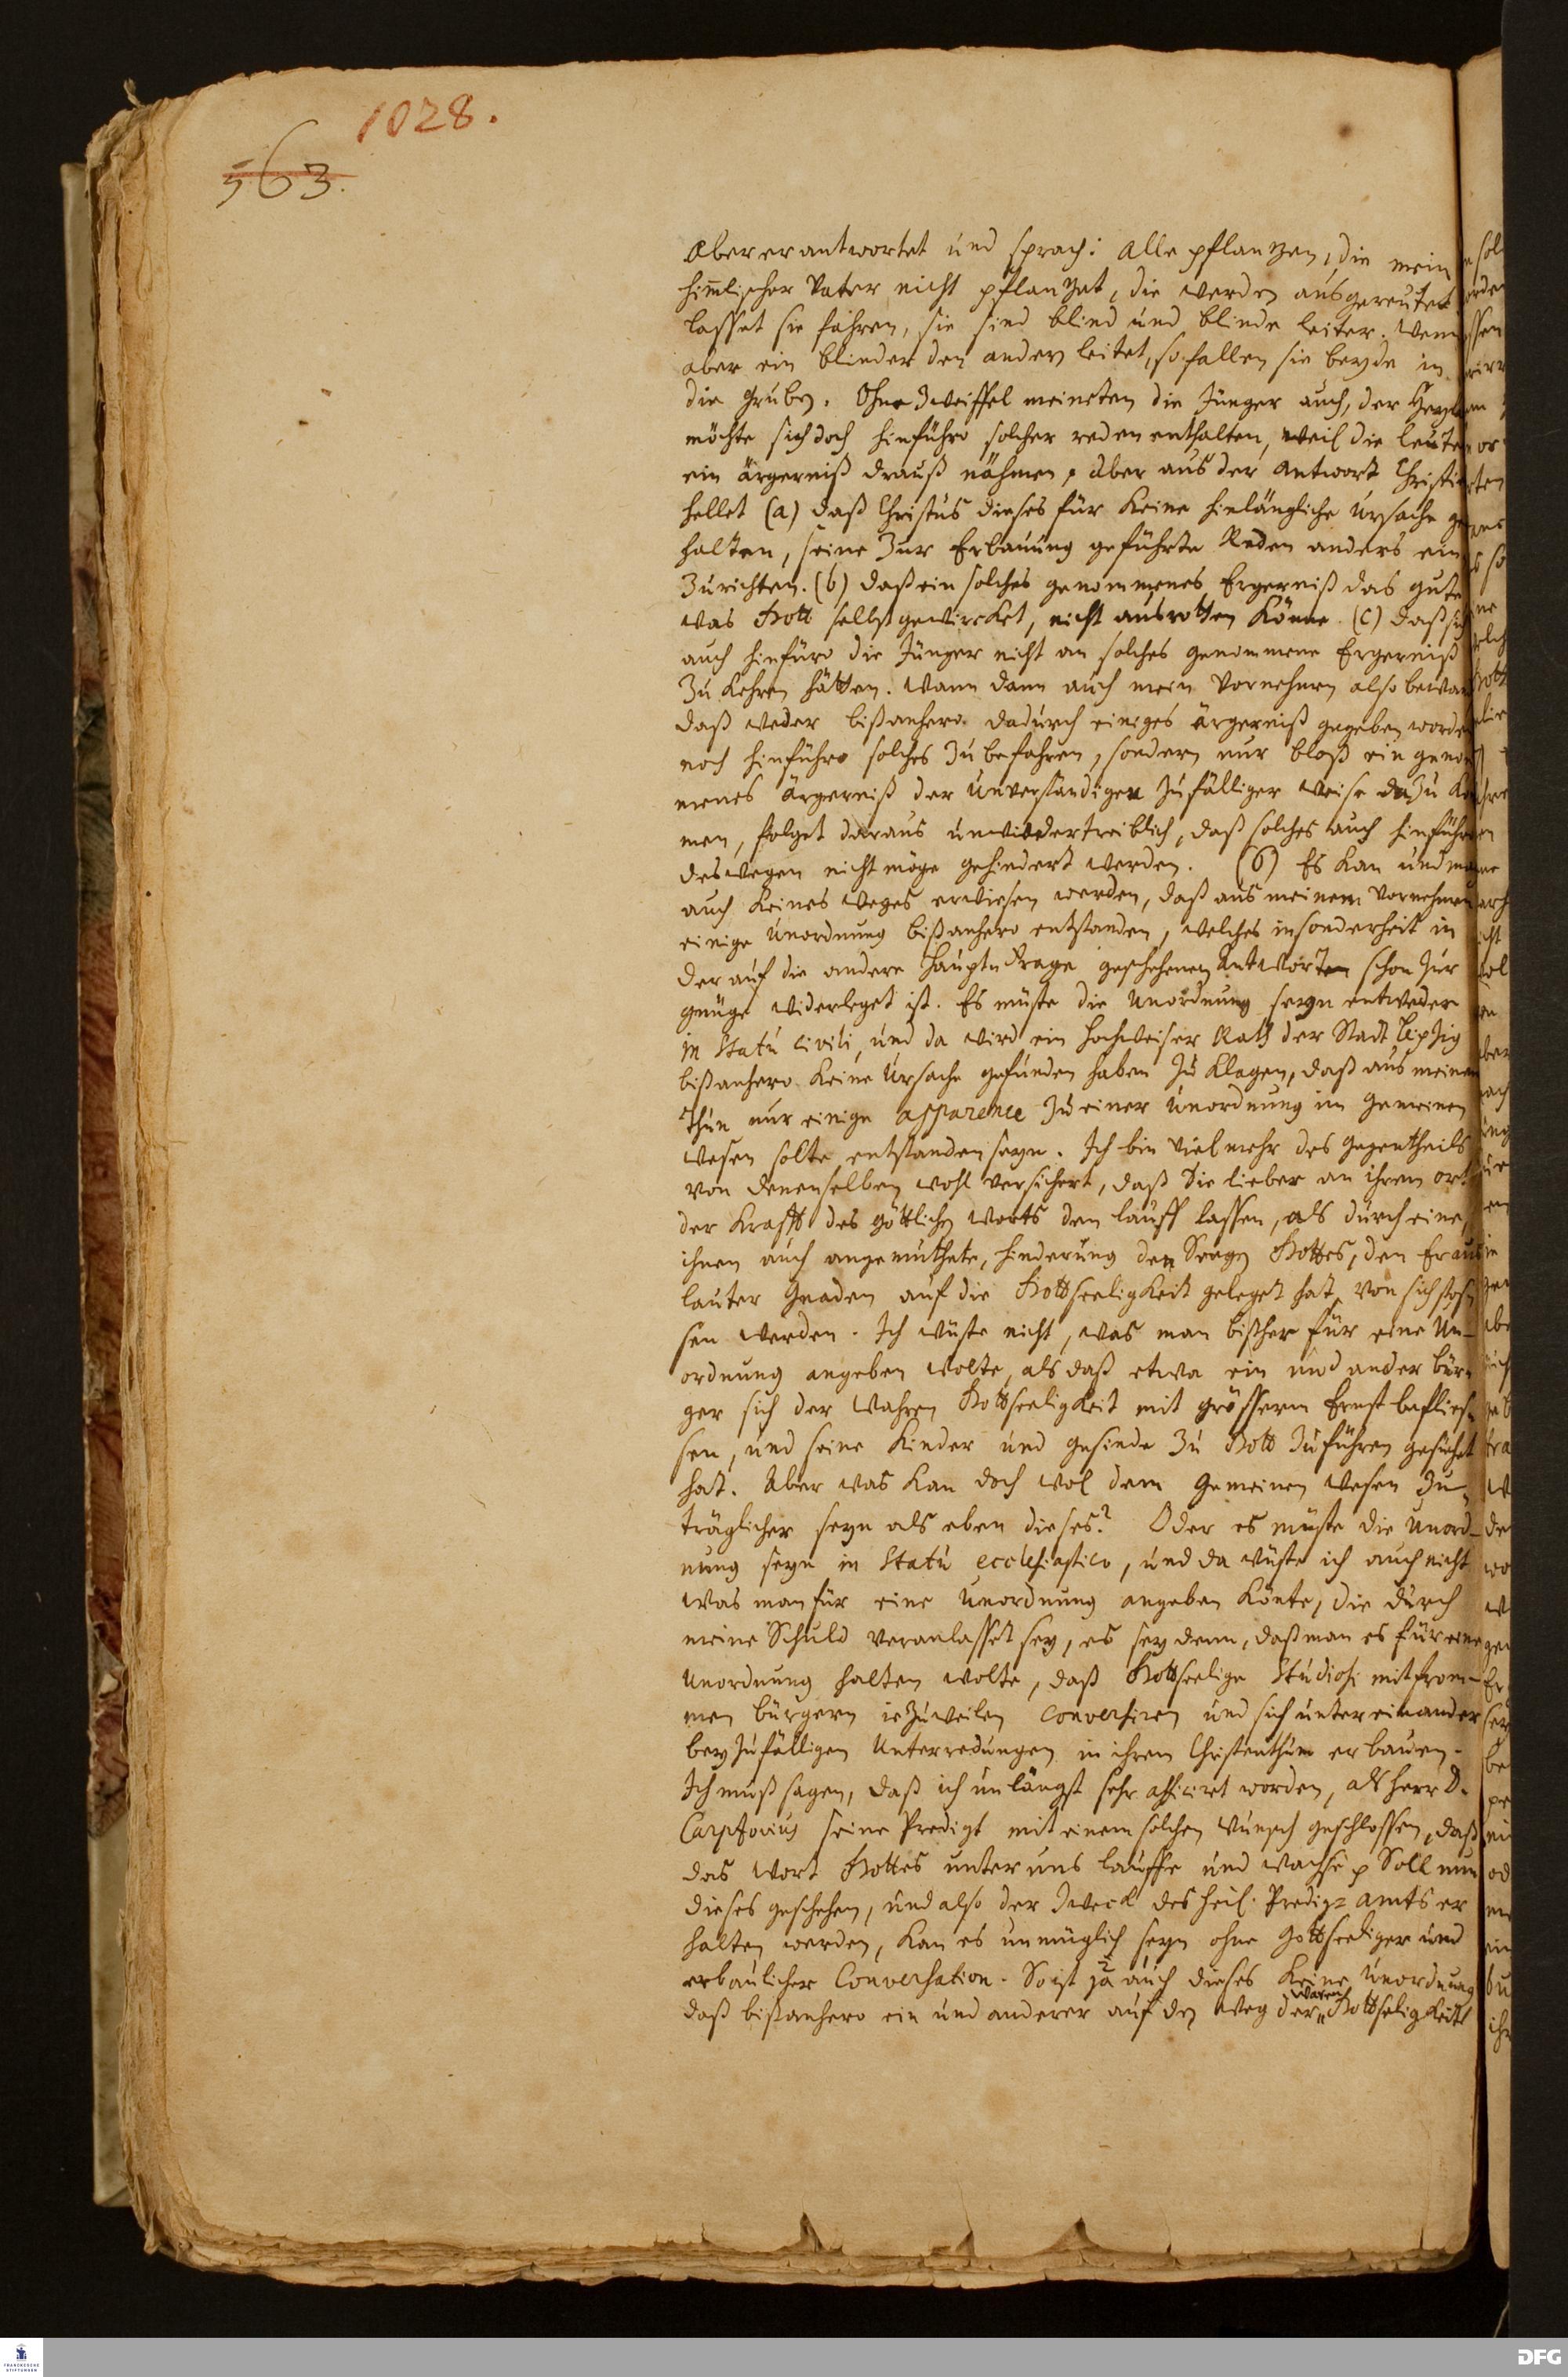 1028.
563.
Aber er antwortet und sprach: Alle pflantzen, die mein
him̅lischer Vater nicht pflantzet, die werden ausgereutet.
lasset sie fahren, sie sind blind und blinde leiter. Wenn
aber ein blinder den andern leitet, so fallen sie beyde in
die Gruben. Ohne Zweiffel meineten die Jünger auch, der
möchte sich doch hinführo solcher reden enthalten, weil die leute
ein ärgerniß drauß nähmen, Aber aus der Antwort Christi
hellet (a) daß Christus dieses für keine hinlängliche Ursache ge
halten, seine zur Erbauung geführte Reden anders ein
zurichten. (b) daß ein solches genommenes Ergerniß das gute
was Gott selbst gewircket, nicht ausrotten könne. (c) daß sich
auch hinfüro die Jünger nicht an solches genommene Ergerniß
zu kehren hätten. Wann dann auch mein Vornehmen also bewan
daß weder bißanhero dadurch einiges ärgerniß gegeben worden
noch hinführo solches zu befahren, sondern nur bloß ein genom
menes ärgerniß der Unverständigen zufälliger Weise dazu kom
men, folget daraus unwiedertreiblich, daß solches auch hinführo
deswegen nicht möge gehindert werden. (6) Es kan und mag
auch keines weges erwiesen werden, daß aus meinem Vornehmen
einige Unordnung bißanhero entstanden, welches insonderheit in
der auf die andere Haupt-Frage geschehenen Antworten schon zur
gnüge widerleget ist. Es müste die Unordnung seyn entweder
in Statu civili, und da wird ein Hochweiser Rath der Stadt Leipzig
bißanhero keine Ursache gefunden haben zu klagen, daß aus meinem
Thun nur einige apparence zu einer Unordnung im Gemeinen
Wesen solte entstanden seyn. Ich bin vielmehr des Gegentheils
von denenselben wohl versichert, daß Sie lieber an ihrem ort
der Krafft des göttlichen Worts den lauff lassen, als durch eine
ihnen auch angemuthete, hinderung den Seegen Gottes, den Er aus
lauter Gnaden auf die Gottseeligkeit geleget hat, von sich stos-
sen werden. Ich wüste nicht, was man bißher für eine Un-
ordnung angeben wolte, als daß etwa ein und ander bür-
ger sich der Wahren Gottseeligkeit mit grösserm Ernst beflies-
sen, und seine Kinder und gesinde zu Gott zuführen gesuchet
hat. Aber was kan doch wol dem Gemeinen Wesen zu-
träglicher seyn als eben dieses? Oder es müste die Unord-
nung seyn in Statu ecclesiastico, und da wüste ich auch nicht
was man für eine Unordnung angeben könte, die durch
meine Schuld veranlasset sey, es sey denn, daß man es für eine
Unordnung halten wolte, daß Gottseelige Studiosi mit from-
men bürgern iezuweilen conversiren und sich untereinander
bey zufälligen Unterredungen in ihrem Christenthum erbauen.
Ich muß sagen, daß ich unlängst sehr afficiret worden, als Herr D.
Carpzovius seine Predigt mit einem solchen Wunsch geschlossen, daß
das Wort Gottes unter uns lauffe und wachse p Soll nun
dieses geschehen, und also der Zweck des heil. Predig-amts er
halten werden, kan es unmüglich seyn ohne Gottseeliger und
erbaulicher Conversation. So ist ja auch dieses keine Unordnung
daß bißanhero ein und anderer auf den Weg der waren Gottseligkeit